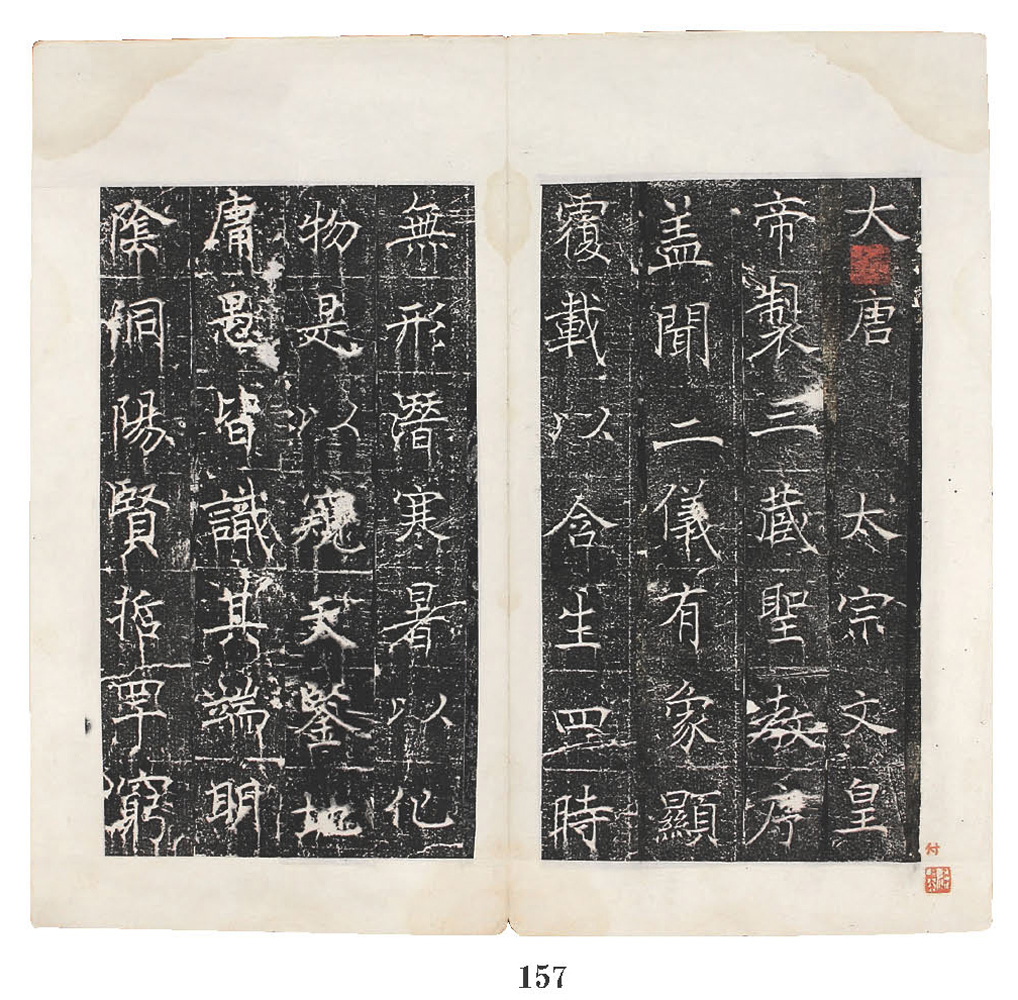 大唐太宗文皇
帝製三藏聖教序
盖聞二儀有象顯
覆載以含生四時
無形潛寒暑以化
物是以窺天鑒地
庸愚皆識其端明
陰洞陽賢哲罕窮
付
157